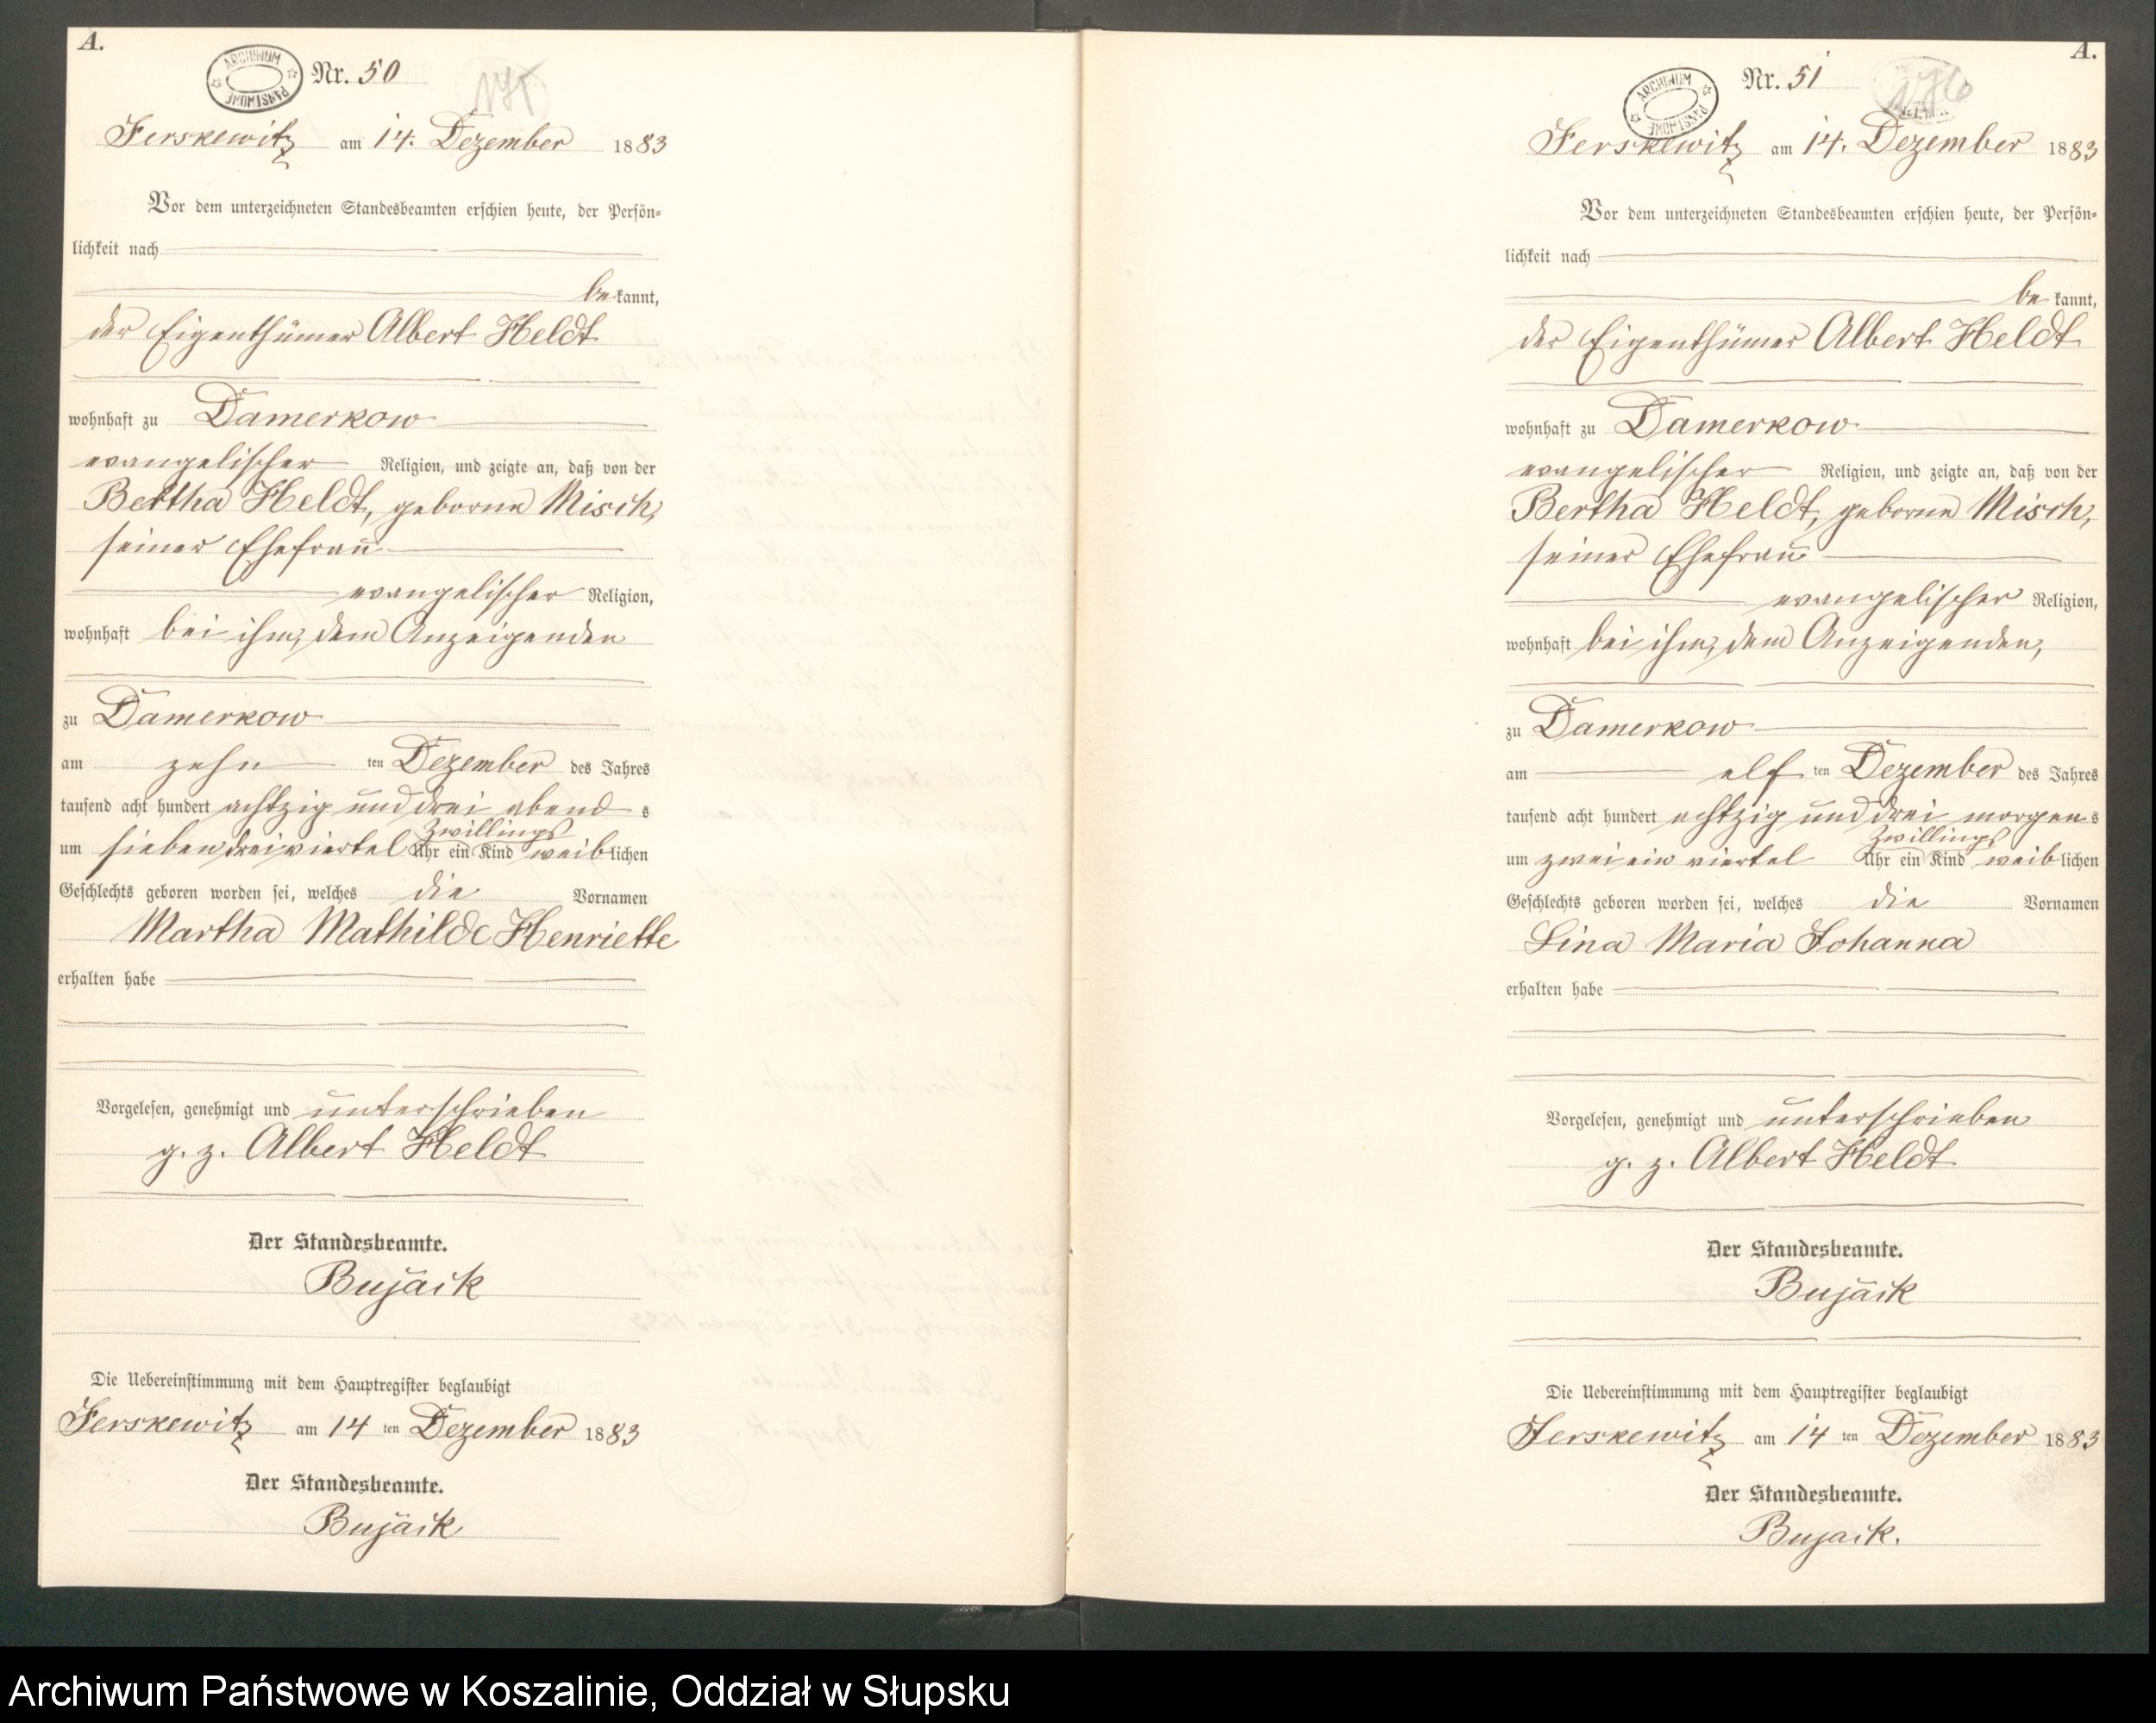 A.
ARCHIWUM PAŃSTWOWE
Nr. 50
Jerskewitz am 14. Dezember 1883
Vor dem unterzeichneten Standesbeamten erschien heute, der Persön-
lichkeit nach
bekannt,
der Eigenthümer Albert Heldt
wohnhaft zu Damerkow
evangelischer Religion, und zeigte an, daß von der
Bertha Heldt, geborne Misch,
seiner Ehefrau
evangelischer Religion,
wohnhaft bei ihm, dem Anzeigenden
zu Damerkow
am zehn ten Dezember des Jahres
tausend acht hundert achtzig und drei abend s
Zwillings
um sieben dreiviertel Uhr ein Kind weiblichen
Geschlechts geboren worden sei, welches die Vornamen
Martha Mathilde Henriette
erhalten habe
Vorgelesen, genehmigt und unterschrieben
g. z. Albert Heldt
Der Standesbeamte.
Bujack
Die Uebereinstimmung mit dem Hauptregister beglaubigt
Jerskewitz am 14 ten Dezember 1883
Der Standesbeamte.
Bujack
A.
ARCHIWUM PAŃSTWOWE
Nr. 51
176
Jerskewitz am 14. Dezember 1883
Vor dem unterzeichneten Standesbeamten erschien heute, der Persön-
lichkeit nach
bekannt,
der Eigenthümer Albert Heldt
wohnhaft zu Damerkow
evangelischer Religion, und zeigte an, daß von der
Bertha Heldt, geborne Misch,
seiner Ehefrau
evangelischer Religion,
wohnhaft bei ihm, dem Anzeigenden,
zu Damerkow
am elf ten Dezember des Jahres
tausend acht hundert achtzig und drei morgens
Zwillings
um zwei ein viertel Uhr ein Kind weiblichen
Geschlechts geboren worden sei, welches die Vornamen
Lina Maria Johanna
erhalten habe
Vorgelesen, genehmigt und unterschrieben
g. z. Albert Heldt
Der Standesbeamte.
Bujack
Die Uebereinstimmung mit dem Hauptregister beglaubigt
Jerskewitz am 14 ten Dezember 1883
Der Standesbeamte.
Bujack.
Archiwum Państwowe w Koszalinie, Oddział w Słupsku